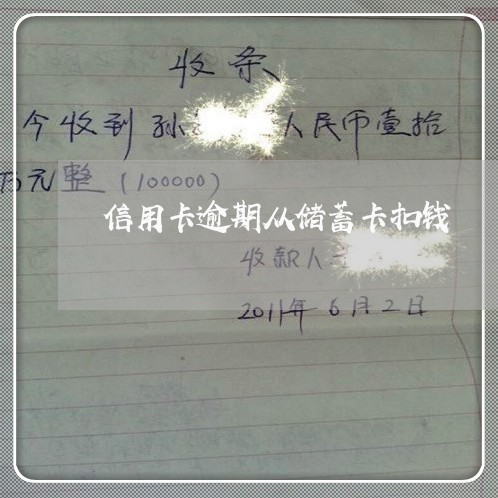 收条
今收到孙 人民币壹拾
万元整（100000）
信用卡逾期从储蓄卡扣钱
收款人
2011年6月2日